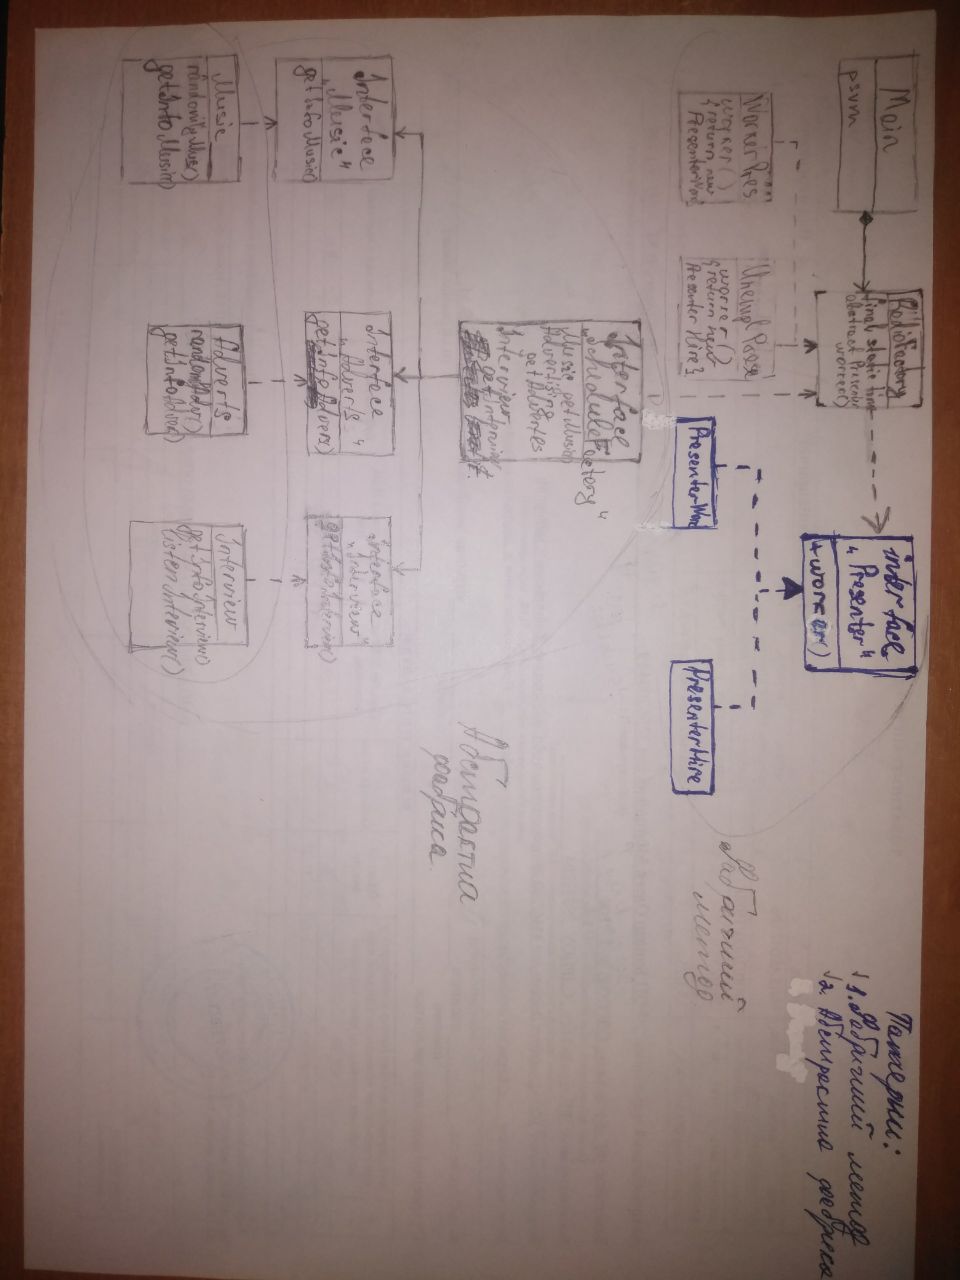 Main
psvm
RadioFactory
final static time
abstract Presenter
worker()
interface
„Presenter"
+worker()
Патерни:
1. Фабричний метод
2. Абстрактна фабрика
WorkerPres
worker()
{return new
PresenterWork}
UnemplPrese
worker()
{return new
Presenter Hire}
PresenterWork
PresenterHire
Фабричний
метод
Interface
„ScheduleFactory"
Music getMusic()
Advertising
getAdvertes
Interview
getInterview
Абстрактна
фабрика
Interface
„Music"
getInfoMusic()
Interface
„Adverts"
getInfoAdvers()
Interface
„Interview"
getInfoInterview()
Music
randomlyMusic()
getInfoMusic()
Adverts
randomAdv()
getInfoAdver()
Interview
getInfoInterview()
listenInterview()